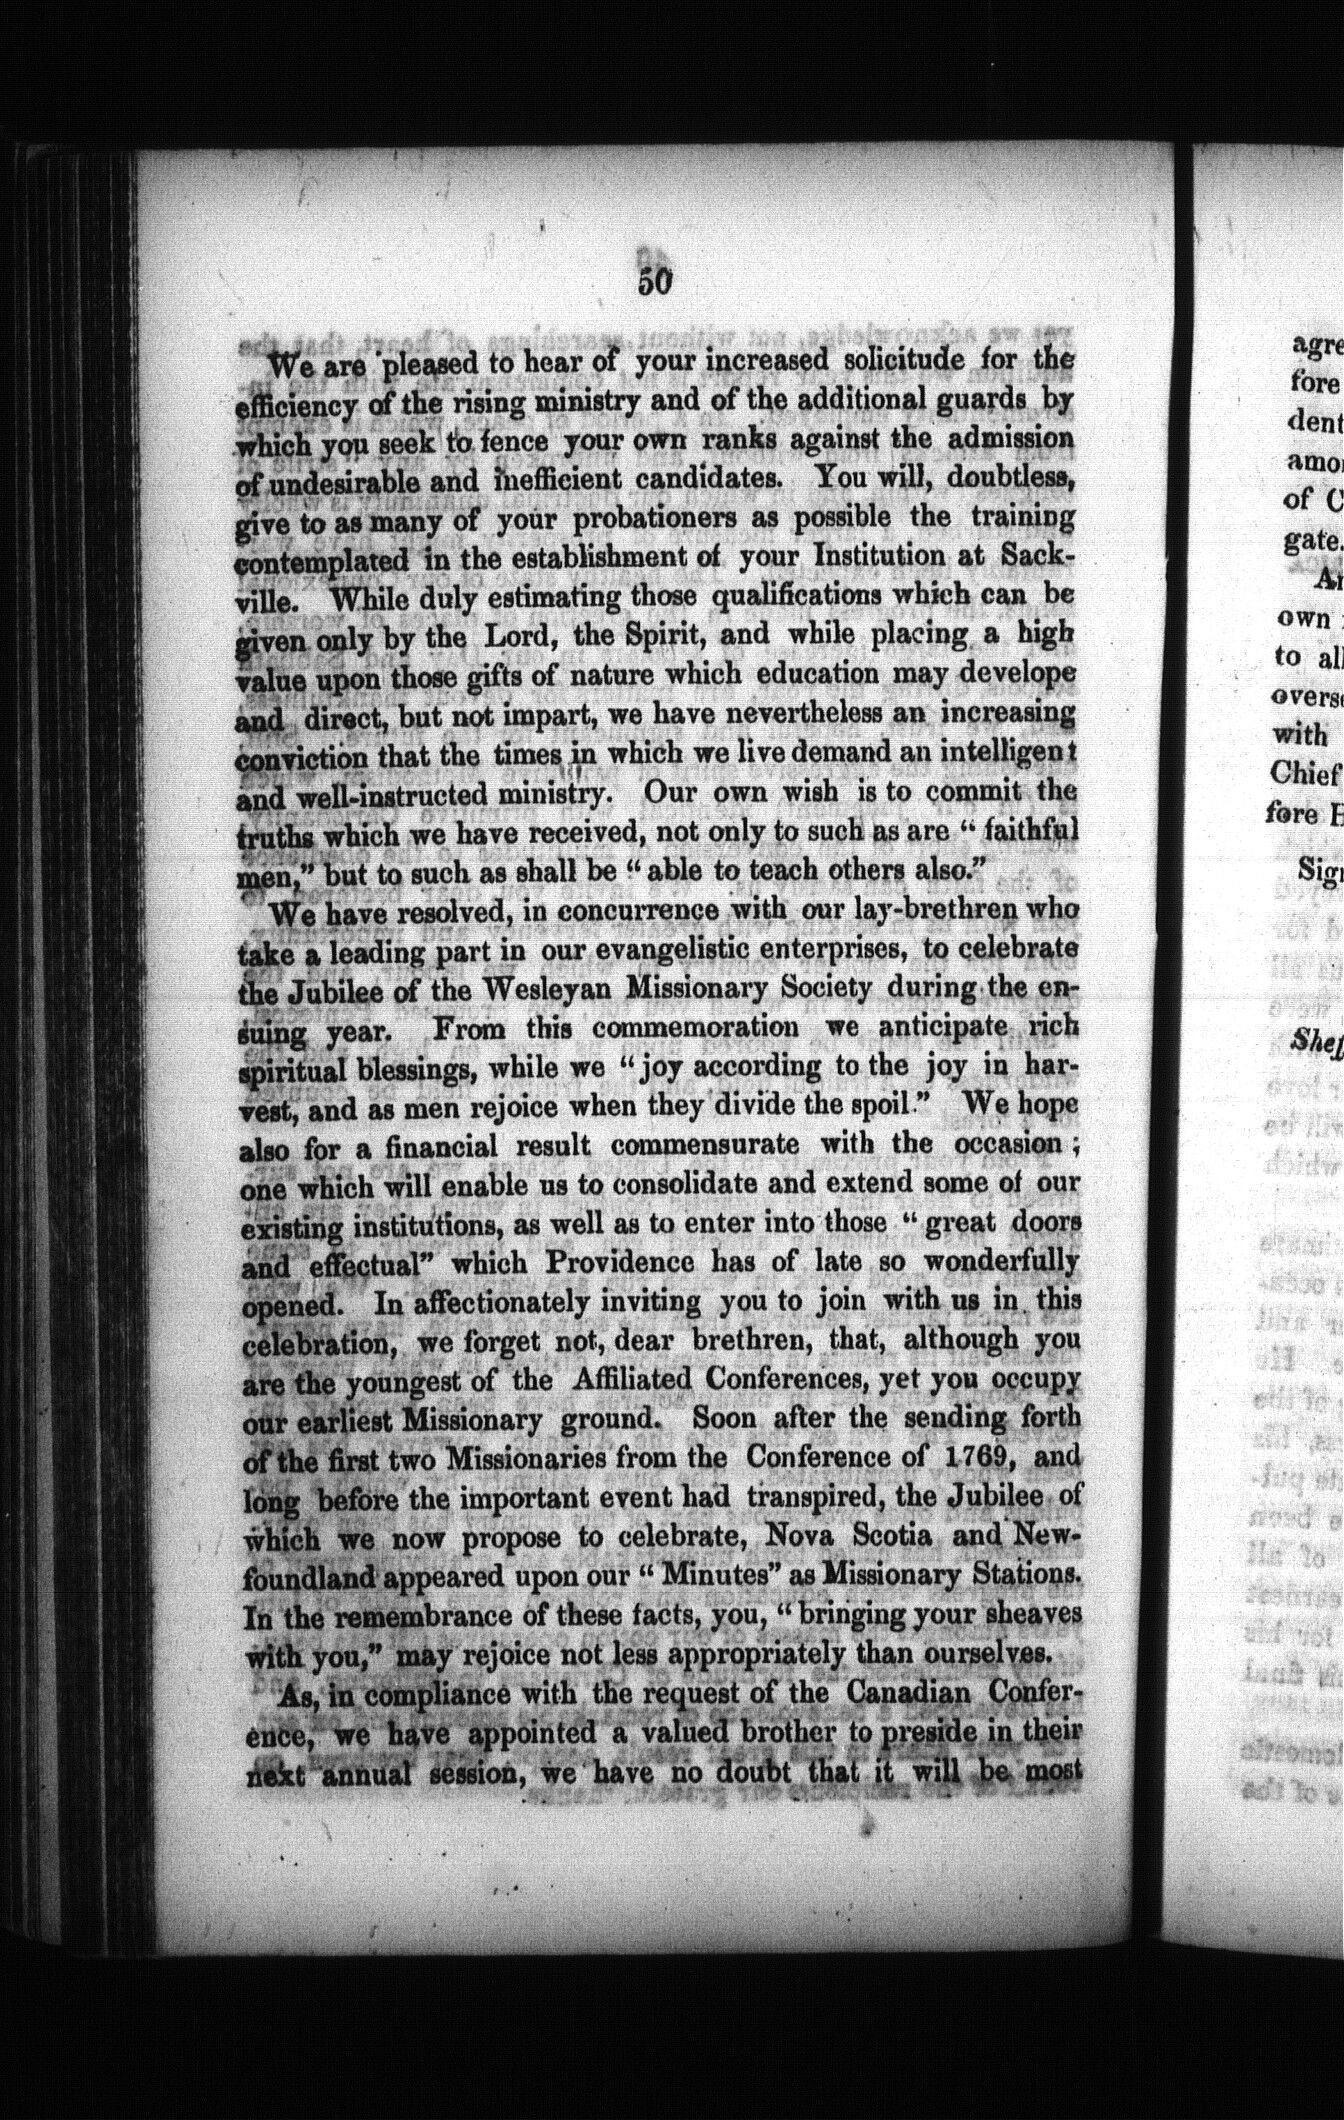 50
We are pleased to hear of your increased solicitude for the
efficiency of the rising ministry and of the additional guards by
which you seek to fence your own ranks against the admission
of undesirable and inefficient candidates. You will, doubtless,
give to as many of your probationers as possible the training
contemplated in the establishment of your Institution at Sack-
ville. While duly estimating those qualifications which can be
given only by the Lord, the Spirit, and while placing a high
value upon those gifts of nature which education may develope
and direct, but not impart, we have nevertheless an increasing
conviction that the times in which we live demand an intelligent
and well-instructed ministry. Our own wish is to commit the
truths which we have received, not only to such as are “ faithful
men,” but to such as shall be “ able to teach others also.”
We have resolved, in concurrence with our lay-brethren who
take a leading part in our evangelistic enterprises, to celebrate
the Jubilee of the Wesleyan Missionary Society during the en-
suing year. From this commemoration we anticipate rich
spiritual blessings, while we “ joy according to the joy in har-
vest, and as men rejoice when they divide the spoil.” We hope
also for a financial result commensurate with the occasion ;
one which will enable us to consolidate and extend some of our
existing institutions, as well as to enter into those “ great doors
and effectual” which Providence has of late so wonderfully
opened. In affectionately inviting you to join with us in this
celebration, we forget not, dear brethren, that, although you
are the youngest of the Affiliated Conferences, yet you occupy
our earliest Missionary ground. Soon after the sending forth
of the first two Missionaries from the Conference of 1769, and
long before the important event had transpired, the Jubilee of
which we now propose to celebrate, Nova Scotia and New-
foundland appeared upon our “ Minutes” as Missionary Stations.
In the remembrance of these facts, you, “ bringing your sheaves
with you,” may rejoice not less appropriately than ourselves.
As, in compliance with the request of the Canadian Confer-
ence, we have appointed a valued brother to preside in their
next annual session, we have no doubt that it will be most
agre
fore
dent
amo
of C
gate.
own
to all
overs
with
Chief
fore H
Sig